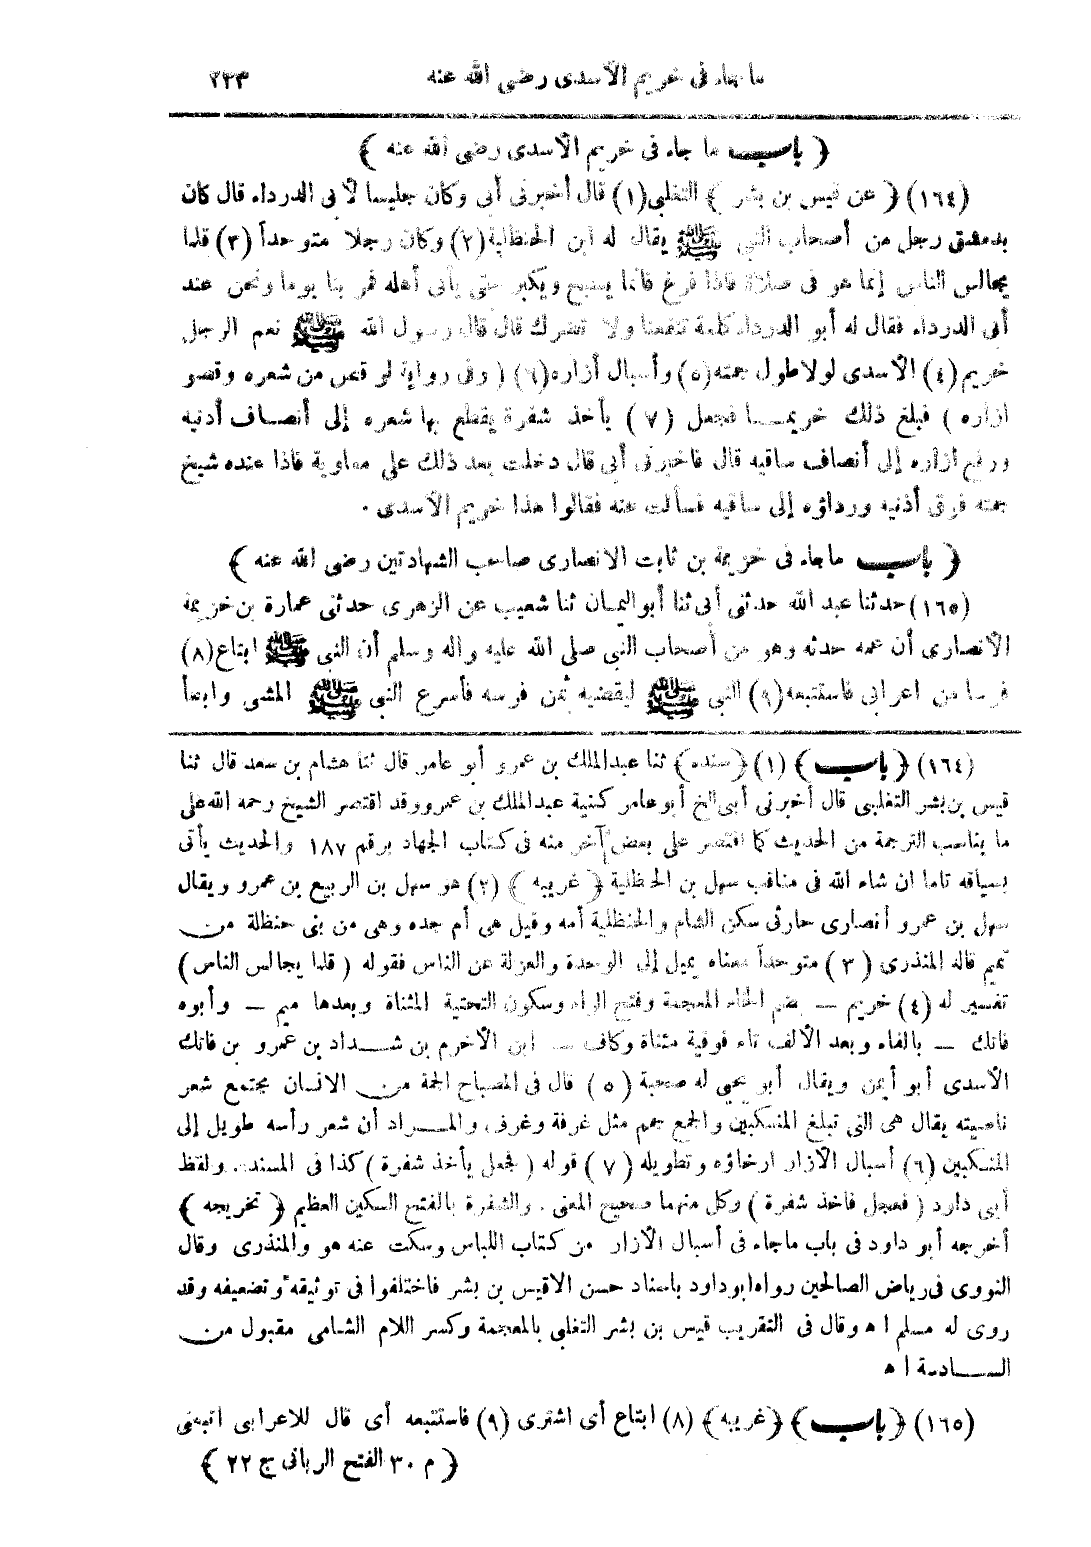 ما جاء فى خريم الأسدى رضى الله عنه ٢٣٣
﴿ باب ما جاء فى خريم الأسدى رضى الله عنه ﴾
(١٦٤) ﴿ عن قيس بن بشر ﴾ التغلبى(١) قال أخبرنى أبى وكان جليسا لأبى الدرداء قال كان
بدمشق رجل من أصحاب النبى ﷺ يقال له ابن الحنظلية(٢) وكان رجلا متوحداً (٣) قلما
يجالس الناس إنما هو فى صلاة فاذا فرغ فانما يسبح ويكبر حتى يأتى أهله فمر بنا يوما ونحن عند
أبى الدرداء فقال له أبو الدرداء كلمة تنفعنا ولا تضرك قال قال رسول الله ﷺ نعم الرجل
خريم(٤) الأسدى لولا طول جمته(٥) وأسبال أزاره(٦) ( وفى رواية لو قص من شعره وقصر
ازاره ) فبلغ ذلك خريمـا فجعل (٧) يأخذ شفرة يقطع بها شعره إلى أنصاف أذنيه
ورفع ازاره إلى أنصاف ساقيه قال فاخبرنى أبى قال دخلت بعد ذلك على معاوية فاذا عنده شيخ
جمته فوق أذنيه ورداؤه إلى ساقيه فسألت عنه فقالوا هذا خريم الأسدى .
﴿ باب ما جاء فى خزيمة بن ثابت الانصارى صاحب الشهادتين رضى الله عنه ﴾
(١٦٥) حدثنا عبد الله حدثنى أبى ثنا أبو اليمان ثنا شعيب عن الزهرى حدثنى عمارة بن خزيمة
الأنصارى أن عمه حدثه وهو من أصحاب النبى صلى الله عليه وآله وسلم أن النبى ﷺ ابتاع(٨)
فرسا من اعرابى فاستتبعه(٩) النبى ﷺ ليقضيه ثمن فرسه فأسرع النبى ﷺ المشى وابطأ
(١٦٤) ﴿ باب ﴾ (١) ﴿ سنده ﴾ ثنا عبد الملك بن عمرو أبو عامر قال ثنا هشام بن سعد قال ثنا
قيس بن بشر التغلبى قال أخبرنى أبى الخ أبو عامر كنية عبد الملك بن عمرو وقد اقتصر الشيخ رحمه الله على
ما يناسب الترجمة من الحديث كما اقتصر على بعض آخر منه فى كتاب الجهاد برقم ١٨٧ والحديث يأتى
بسياقه تاما ان شاء الله فى مناقب سهل بن الحنظلية ﴿ غريبه ﴾ (٢) هو سهل بن الربيع بن عمرو ويقال
سهل بن عمرو أنصارى حارثى سكن الشام والحنظلية أمه وقيل هى أم جده وهى من بنى حنظلة من
تميم قاله المنذرى (٣) متوحداً معناه يميل إلى الوحدة والعزلة عن الناس فقوله ( قلما يجالس الناس )
تفسير له (٤) خريم – بضم الخاء المعجمة وفتح الراء وسكون التحتية المثناة وبعدها ميم – وأبوه
فاتك – بالفاء وبعد الألف تاء فوقية مثناة وكاف – ابن الأخرم بن شـداد بن عمرو بن فاتك
الأسدى أبو أيمن ويقال أبو يحيى له صحبة (٥) قال فى المصباح الجمة من الانسان مجتمع شعر
ناصيته يقال هى التى تبلغ المنكبين والجمع جمم مثل غرفة وغرف والمـراد أن شعر رأسه طويل إلى
المنكبين (٦) أسبال الأزار ارخاؤه وتطويله (٧) قوله ( فجعل يأخذ شفرة ) كذا فى المسند ولفظ
أبى داود ( فعجل فاخذ شفرة ) وكل منهما صحيح المعنى . والشفرة بالفتح السكين العظيم ﴿ تخريجه ﴾
أخرجه أبو داود فى باب ما جاء فى أسبال الأزار من كتاب اللباس وسكت عنه هو والمنذرى وقال
النووى فى رياض الصالحين رواه ابو داود باسناد حسن الا قيس بن بشر فاختلفوا فى توثيقه وتضعيفه وقد
روى له مسلم ا ه وقال فى التقريب قيس بن بشر التغلبى بالمعجمة وكسر اللام الشامى مقبول من
السـادسة ا ه
(١٦٥) ﴿ باب ﴾ ﴿ غريبه ﴾ (٨) ابتاع أى اشترى (٩) فاستتبعه أى قال للاعرابى اتبعنى
﴿ م ٣٠ الفتح الربانى ج ٢٢ ﴾